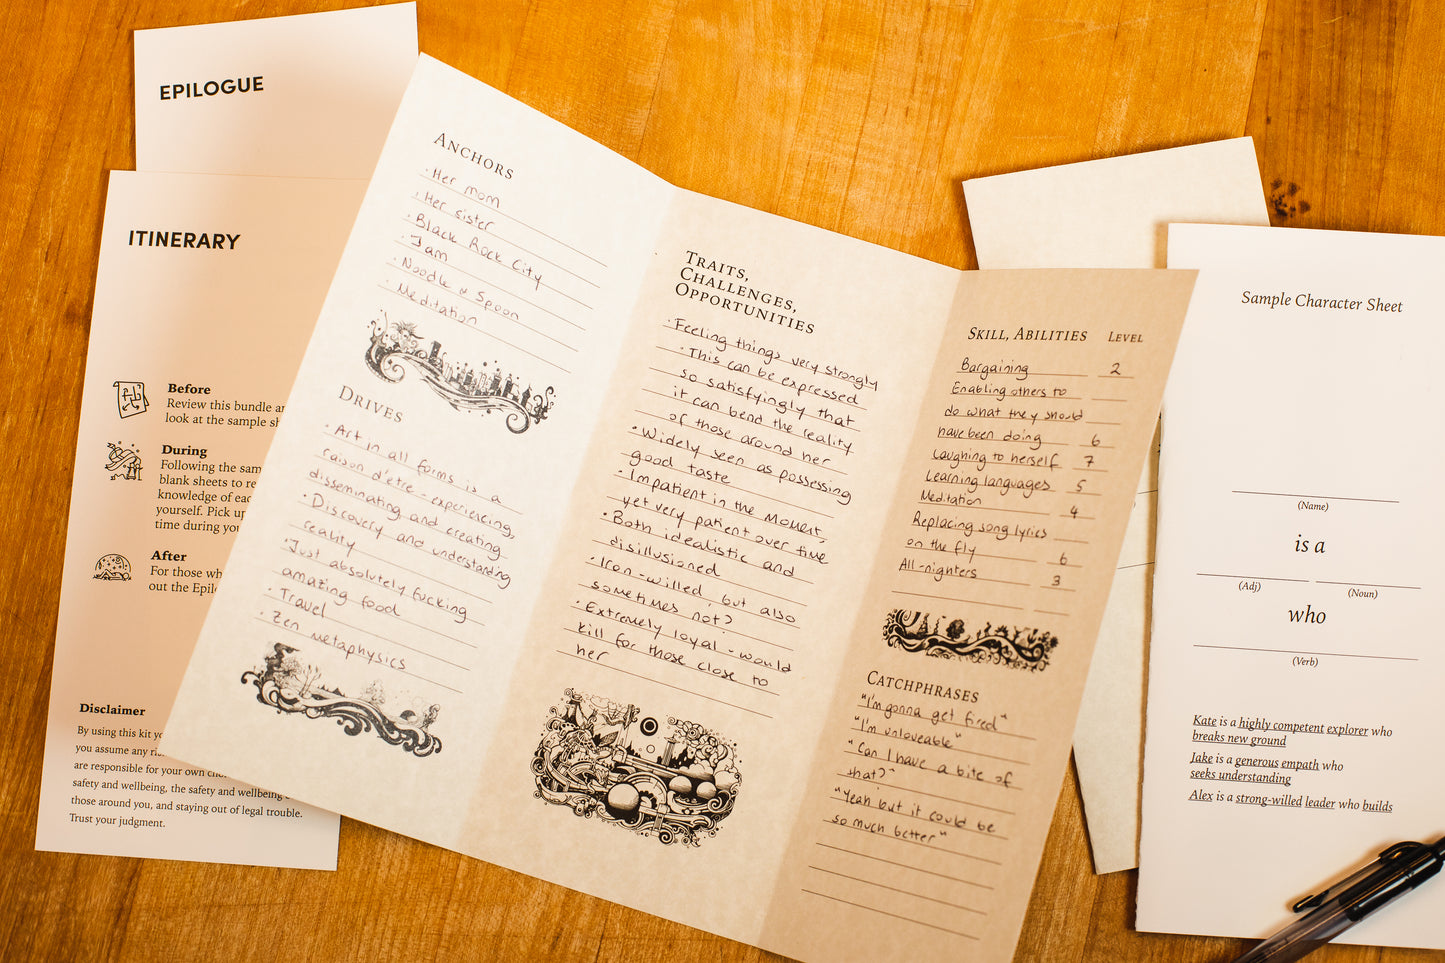 EPILOGUE
ITINERARY
Before
Review this bundle
look at the sample
During
Following the
blank sheets to
knowledge of
yourself. Pick
time during
After
For those
out the
Disclaimer
By using this kit
you assume any
are responsible for your own
safety and wellbeing, the safety and wellbeing
those around you, and staying out of legal trouble.
Trust your judgment.
ANCHORS
· Her mom
· Her sister
· Black Rock City
· Jam
· Noodle & Spoon
· Meditation
DRIVES
· Art in all forms is a
raison d'être - experiencing,
disseminating and creating
· Discovery and understanding
reality
· Just absolutely fucking
amazing food
· Travel
· Zen metaphysics
TRAITS,
CHALLENGES,
OPPORTUNITIES
· Feeling things very strongly
· This can be expressed
so satisfyingly that
it can bend the reality
of those around her
· Widely seen as possessing
good taste
· Impatient in the moment,
yet very patient over time
· Both idealistic and
disillusioned
· Iron-willed, but also
sometimes not?
· Extremely loyal - would
kill for those close to
her
SKILL, ABILITIES LEVEL
Bargaining 2
Enabling others to
do what they should
have been doing 6
Laughing to herself 7
Learning languages 5
Meditation 4
Replacing song lyrics
on the fly 6
All-nighters 3
CATCHPHRASES
"I'm gonna get fired"
"I'm unloveable"
"Can I have a bite of
that?"
"Yeah but it could be
so much better"
Sample Character Sheet
(Name)
is a
(Adj) (Noun)
who
(Verb)
Kate is a highly competent explorer who
breaks new ground
Jake is a generous empath who
seeks understanding
Alex is a strong-willed leader who builds